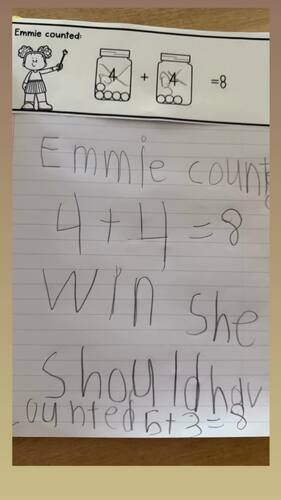 Emmie counted:
4 + 4 =8
Emmie count
4+4=8
Win She
Shouldhav
counted 5+3=8